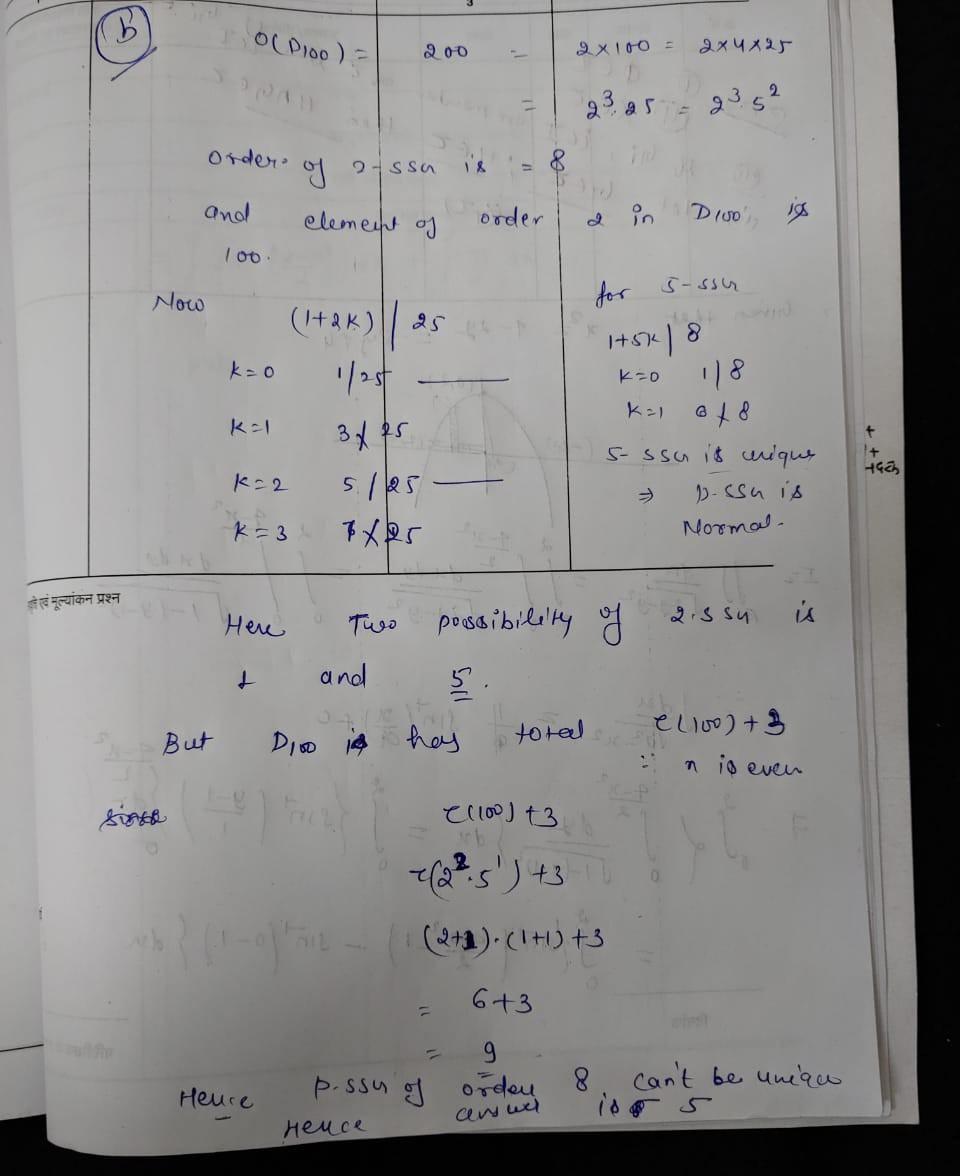 3
b
O(D100) = 200 = 2×100 = 2×4×25
= 2^3.25 = 2^3.5^2
Order of 2-SSG is = 8
and element of order 2 in D100 is
100.
Now
(1+2K) | 25
K=0 1/25
K=1 3∤25
K=2 5/25
K=3 7∤25
for 5-SSG
1+5K | 8
K=0 1|8
K=1 6∤8
5-SSG is unique
⇒ p-SSG is
Normal.
एवं मूल्यांकन प्रश्न
Here Two possibility of 2.SSG is
1 and 5.
But D100 is has total τ(100)+3
∵ n is even
since τ(100)+3
τ(2^2.5^1)+3
(2+1).(1+1)+3
= 6+3
= 9
Hence p.SSG of order 8 can't be unique
Hence answer is 5